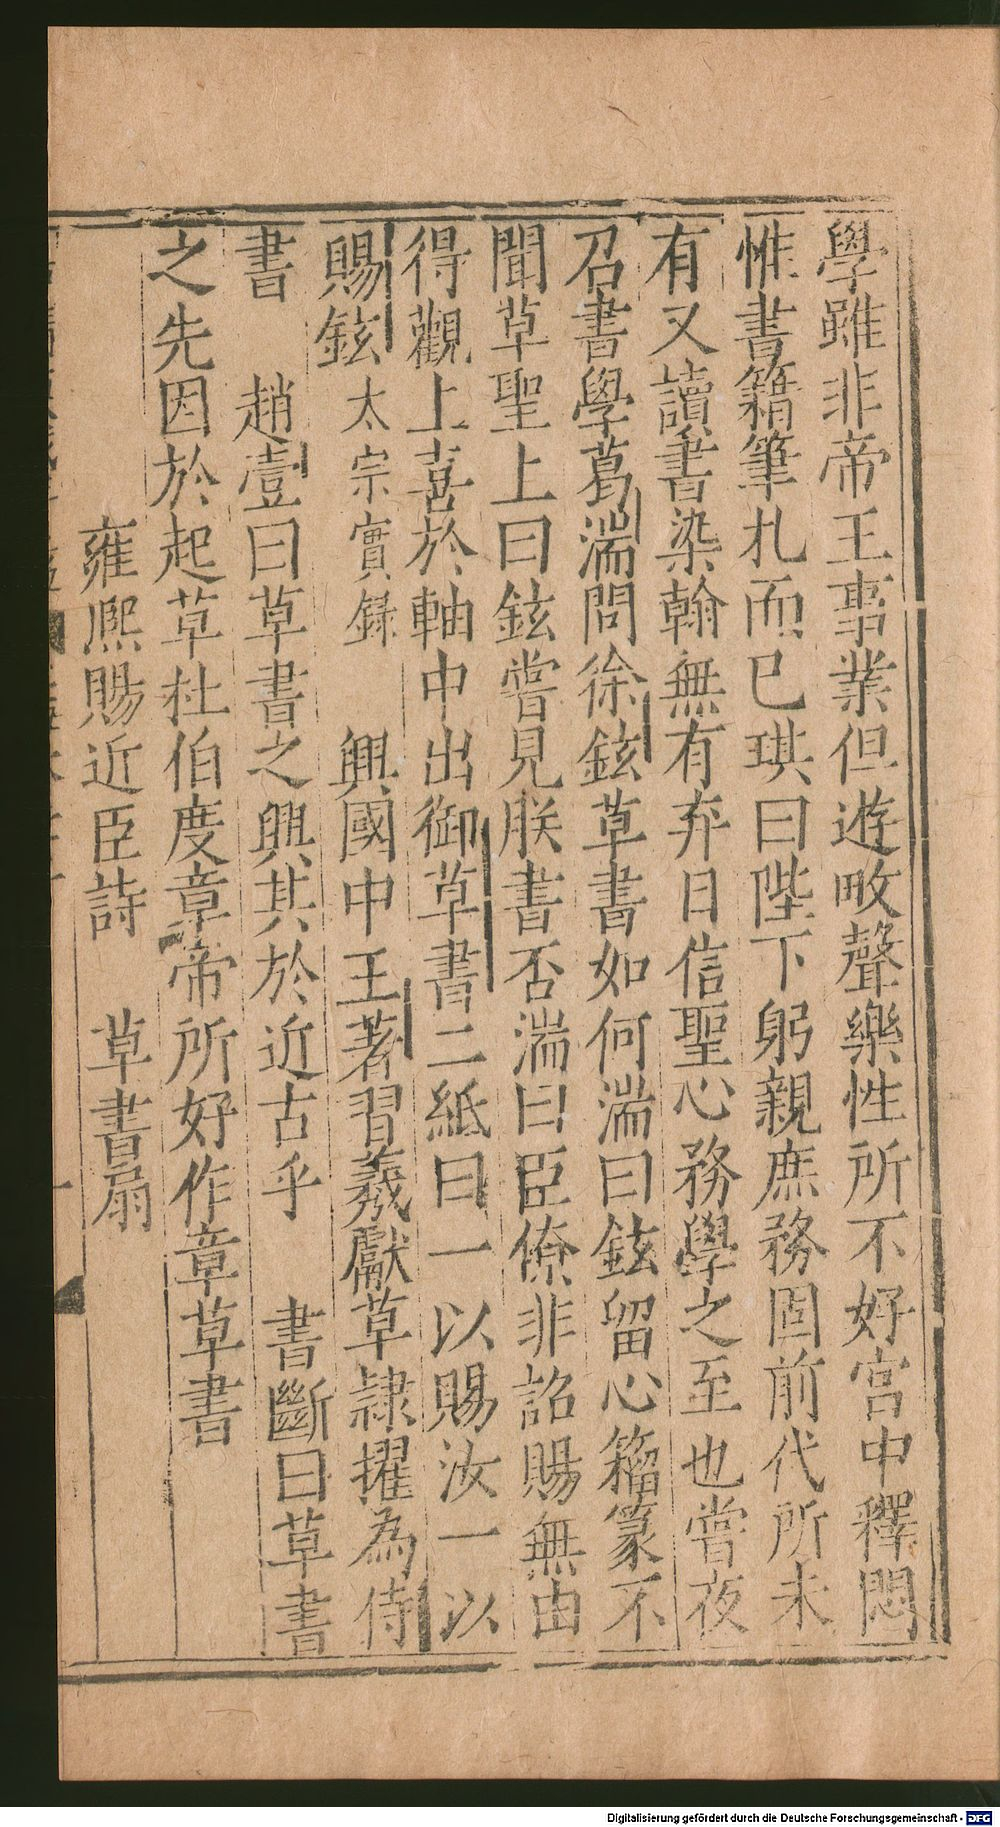 學雖非帝王事業但遊畋聲樂性所不好宮中釋悶
惟書籍筆札而已琪曰陛下躬親庶務固前代所未
有又讀書染翰無有弃日信聖心務學之至也嘗夜
召書學葛湍問徐鉉草書如何湍曰鉉留心籀篆不
聞草聖上曰鉉嘗見朕書否湍曰臣僚非詔賜無由
得觀上喜於軸中出御草書二紙曰一以賜汝一以
賜鉉太宗實錄 興國中王著習羲獻草隸擢為侍
書 趙壹曰草書之興其於近古乎 書斷曰草書
之先因於起草杜伯度章帝所好作章草書
雍熙賜近臣詩 草書扇
Digitalisierung gefördert durch die Deutsche Forschungsgemeinschaft - DFG